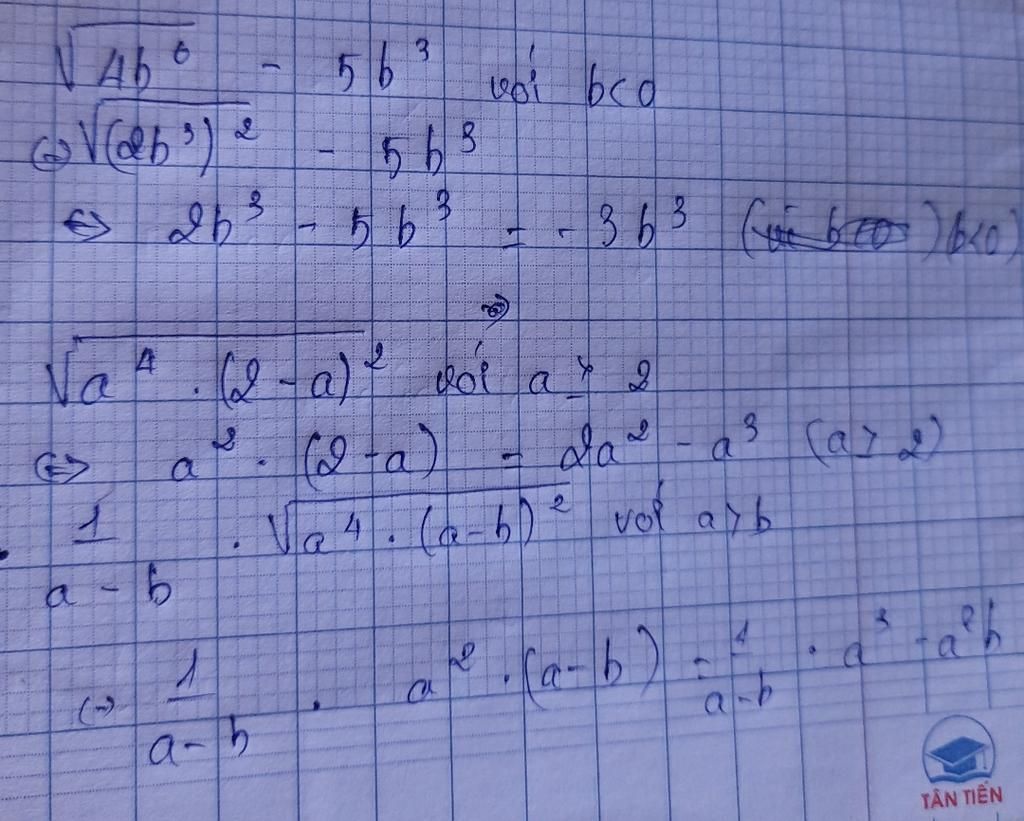 √4b⁶ - 5b³ với b<0
⇔ √(2b³)² - 5b³
⇔ 2b³ - 5b³ = - 3b³ ( ) b<0)
⇔
√a⁴ . (2 - a)² với a ≥ 2
⇔ a² . (2 - a) = 2a² - a³ (a > 2)
. 1/(a - b) . √a⁴ . (a-b)² với a > b
⇔ 1/(a - b) . a² . (a - b) = 1/(a-b) . a³ - a²b
TÂN TIẾN